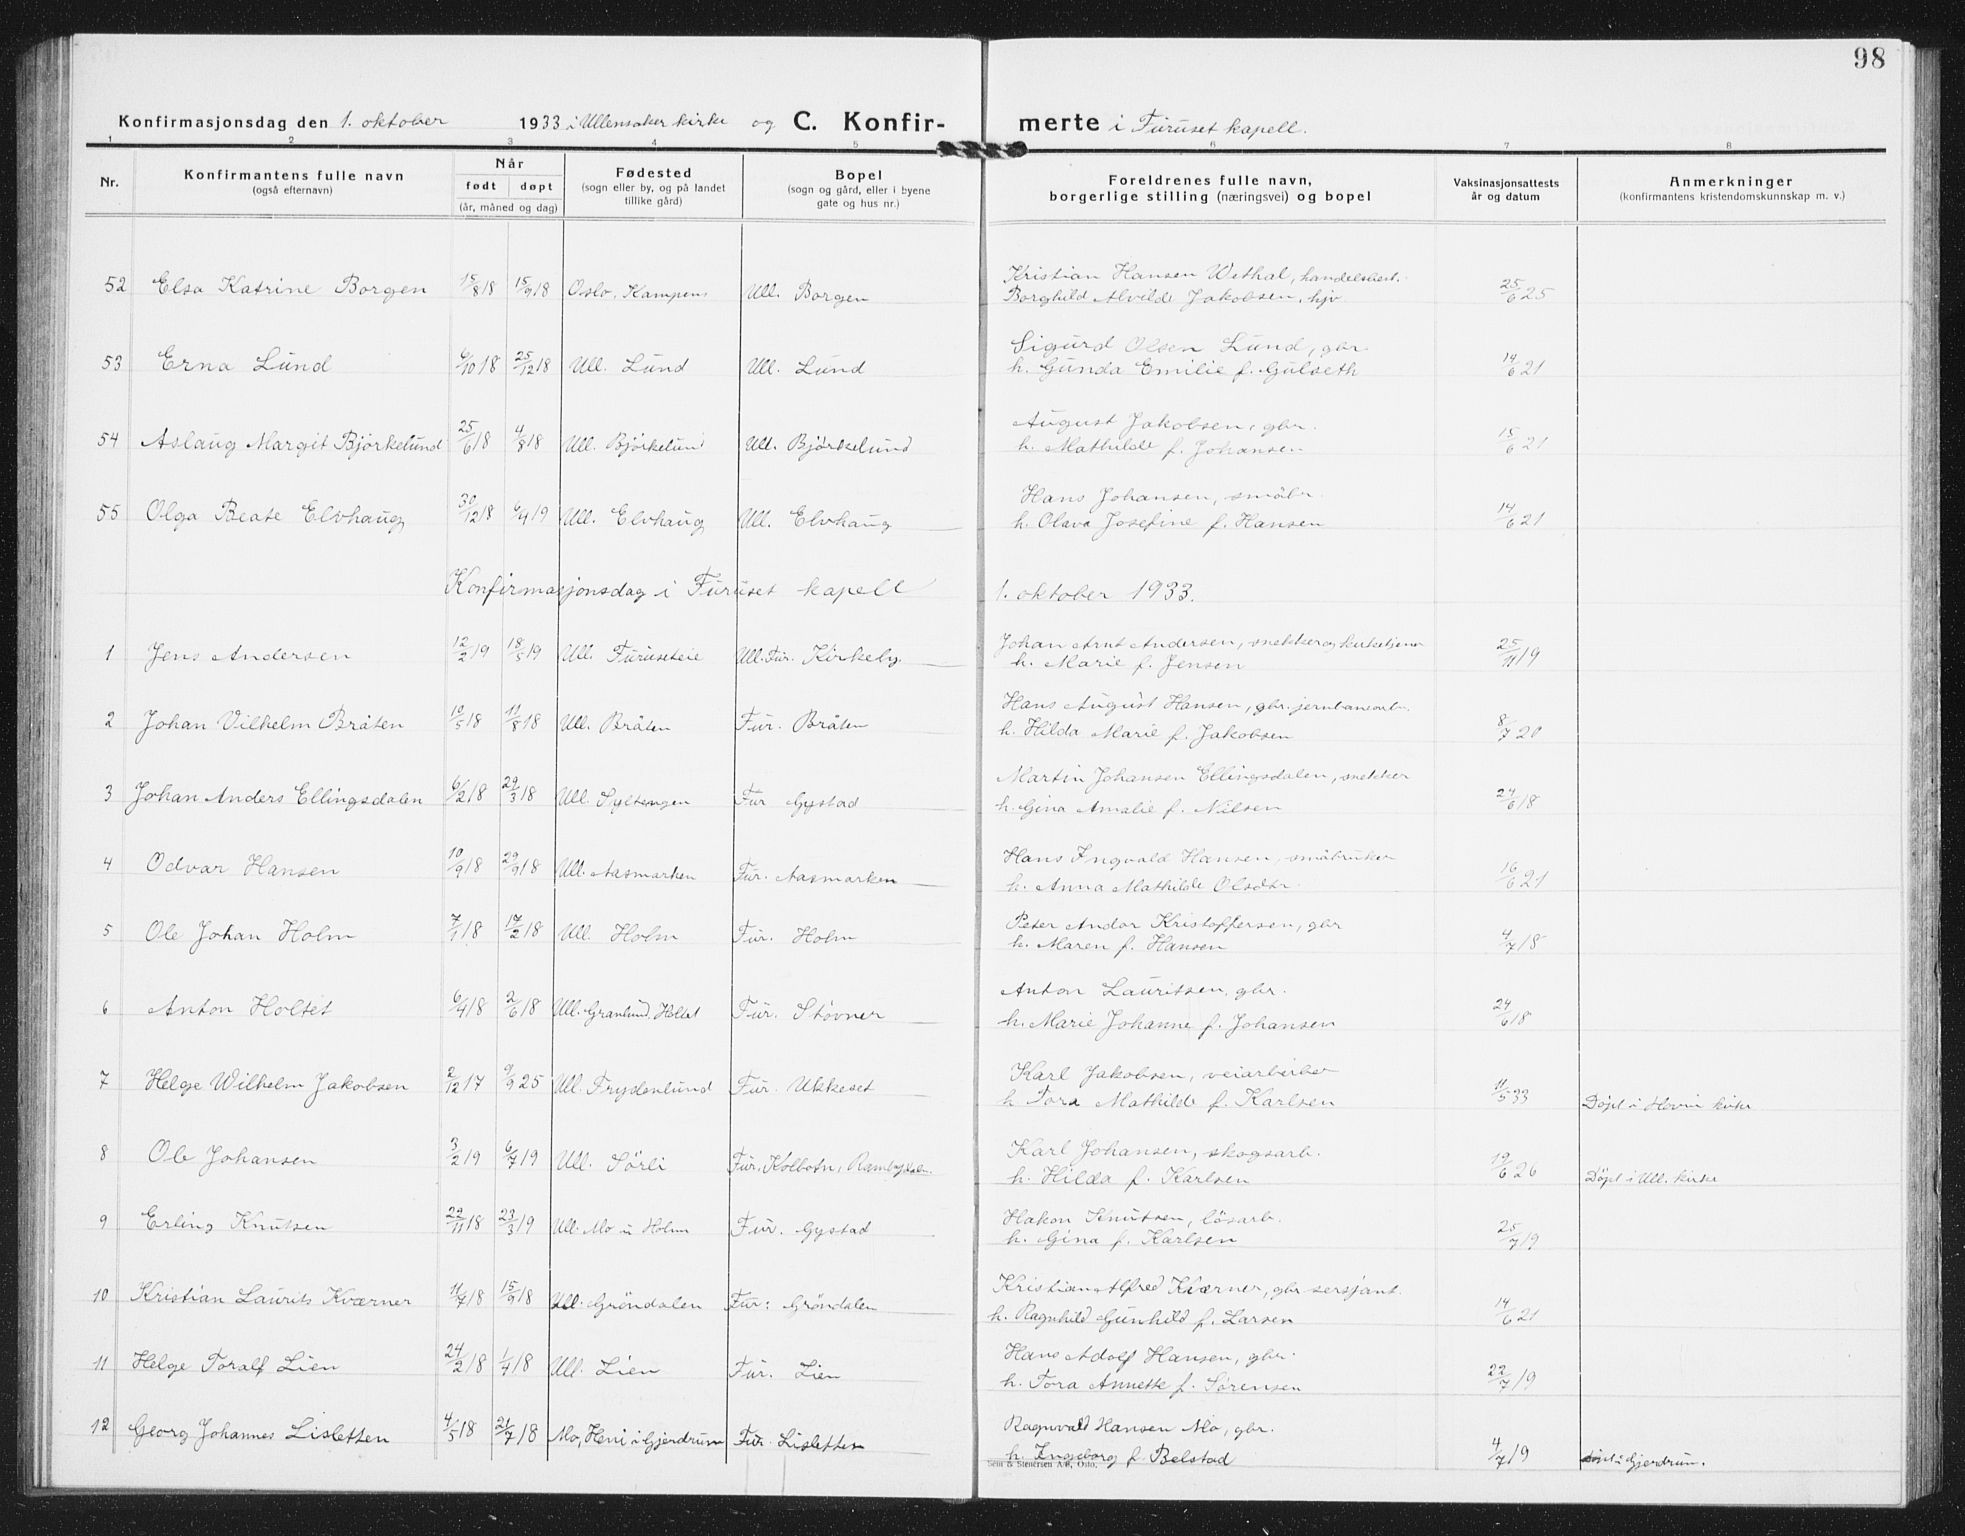 98
Konfirmasjonsdag den 1. oktober 1933 i Ullensaker kirke og C. Konfirmerte i Furuset kapell.
1 2 3 4 5 6 7 8
Nr. Konfirmantens fulle navn (også efternavn) Når født døpt (år, måned og dag) Fødested (sogn eller by, og på landet tillike gård) Bopel (sogn og gård, eller i byene gate og hus nr.) Foreldrenes fulle navn, borgerlige stilling (næringsvei) og bopel Vaksinasjonsattests år og datum Anmerkninger (konfirmantens kristendomskunnskap m. v.)
Kristian Hansen Wethal, handelsbest.
52 Elsa Katrine Borgen 15/8 18 15/9 18 Oslo, Kampens Ull. Borgen Borghild Alvilde Jakobsen, hjv. 25/6 25
Sigurd Olsen Lund, gbr.
53 Erna Lund 6/10 18 25/12 18 Ull. Lund Ull. Lund h. Gunda Emilie f. Gulseth 14/6 21
August Jakobsen, gbr.
54 Aslaug Margit Björkelund 25/6 18 4/8 18 Ull. Björkelund Ull. Björkelund h. Mathilde f. Johansen 15/6 21
Hans Johansen, småbr.
55 Olga Beate Elvhaug 30/12 18 6/4 19 Ull. Elvhaug Ull. Elvhaug h. Olava Josefine f. Hansen 14/6 21
Konfirmasjonsdag i Furuset kapell 1. oktober 1933.
Johan Arnt Andersen, snekker og kirketjener
1 Jens Andersen 12/2 19 18/5 19 Ull. Furuseteie Ull. Fur. Kirkeby h. Marie f. Jensen 25/11 19
Hans August Hansen, gbr. jernbanearb.
2 Johan Vilhelm Bråten 19/5 18 11/8 18 Ull. Bråten Fur. Bråten h. Hilda Marie f. Jakobsen 8/7 20
Martin Johansen Ellingsdalen, snekker
3 Johan Anders Ellingsdalen 6/2 18 29/3 18 Ull. Syltengen Fur Gystad h. Gina Amalie f. Nilsen 24/6 18
Hans Ingvald Hansen, småbruker
4 Odvar Hansen 10/9 18 29/9 18 Ull. Aasmarken Fur. Aasmarken h. Anna Mathilde Olsdtr. 16/6 21
Peter Andor Kristoffersen, gbr
5 Ole Johan Holm 7/1 18 17/2 18 Ull. Holm Fur. Holm h. Maren f. Hansen 4/7 18
Anton Lauritsen, gbr.
6 Anton Holtet 6/4 18 2/6 18 Ull. Granlund, Holtet Fur. Stövner h. Marie Johanne f. Johansen 24/6 18
Karl Jakobsen, veiarbeider
7 Helge Wilhelm Jakobsen 2/12 17 9/9 25 Ull. Frydenlund Fur. Ukkeset h. Tora Mathilde f. Karlsen 11/5 33 Döpt i Hovin kirke
Karl Johansen, skogsarb.
8 Ole Johansen 3/2 19 6/7 19 Ull. Sörli Fur. Kolbotn, h. Hilda f. Karlsen 19/6 26 Döpt i Ull. kirke
Hakon Knutsen, lösarb.
9 Erling Knutsen 22/11 18 23/3 19 Ull. Mo u Holm Fur. Gystad h. Gina f. Karlsen 25/7 19
Kristian Alfred Kværner, gbr sersjant.
10 Kristian Laurits Kværner 11/7 18 15/9 18 Ull. Gröndalen Fur: Gröndalen h. Ragnhild Gunhild f. Larsen 14/6 21
Hans Adolf Hansen, gbr.
11 Helge Toralf Lien 24/2 18 1/4 18 Ull. Lien Fur. Lien h. Tora Annette f. Sörensen 22/7 19
Ragnvald Hansen Mo, gbr.
12 Georg Johannes Lisletten 4/5 18 21/7 18 Mo, Heni i Gjerdrum Fur. Lisletten h. Ingeborg f. Belstad 4/7 19 döpt i Gjerdrum.
Sem & Stenersen A/S, Oslo.